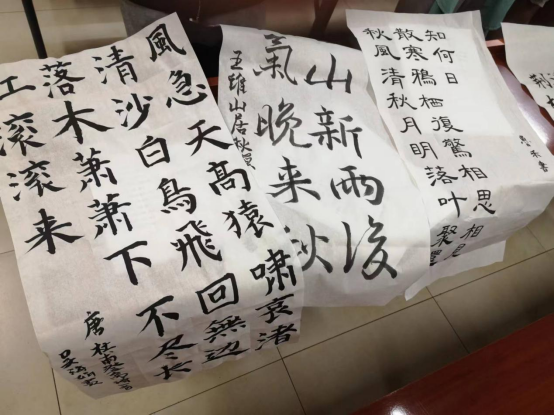 風急天高猿嘯哀渚
清沙白鳥飛回無边
落木萧萧下不尽长
滚滚来
唐
山新雨後
氣晚来秋
王維山居秋
秋風清秋月明落叶聚
散寒鴉栖復驚相思相
知何日